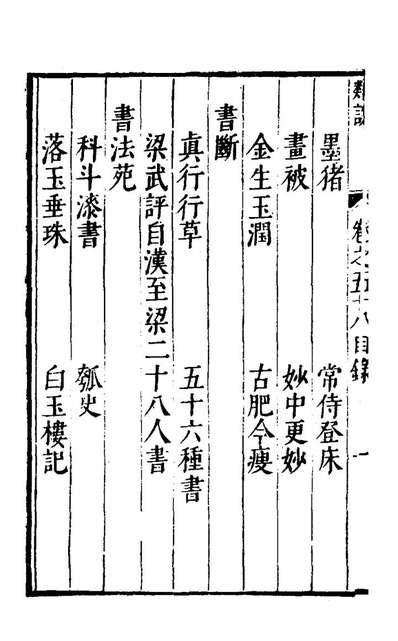 類說 卷之五十八目錄 一
墨猪 常侍登床
畫被 妙中更妙
金生玉潤 古肥今瘦
書斷
真行行草 五十六種書
梁武評自漢至梁二十八人書
書法苑
科斗漆書 瓠史
落玉垂珠 白玉樓記